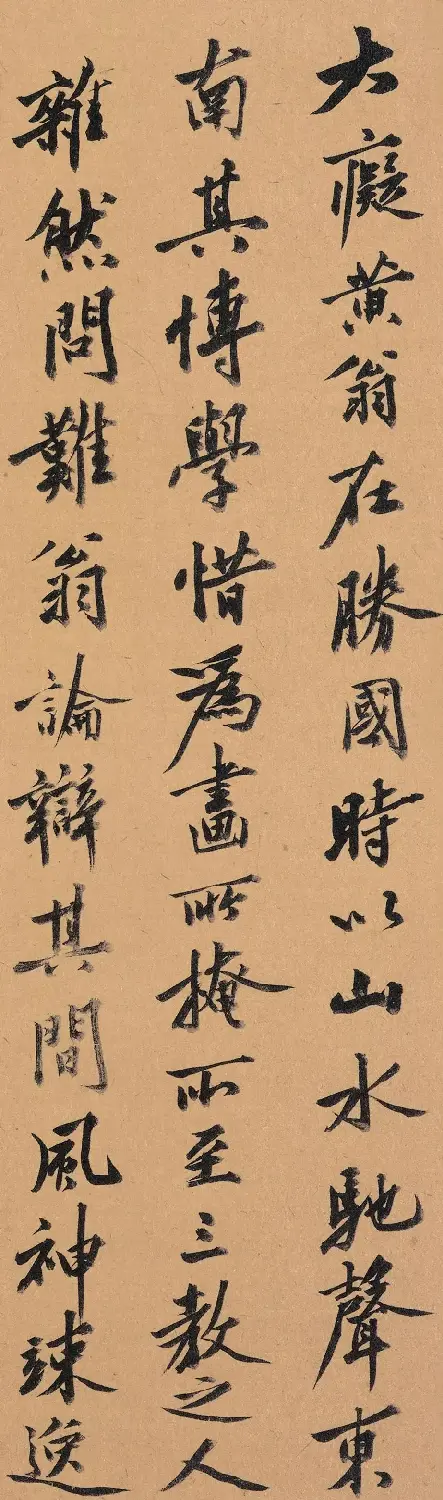 大癡黄翁在勝國時以山水馳聲東
南其博學惜為畫所掩所至三教之人
雜然問難翁論辯其間風神竦逸